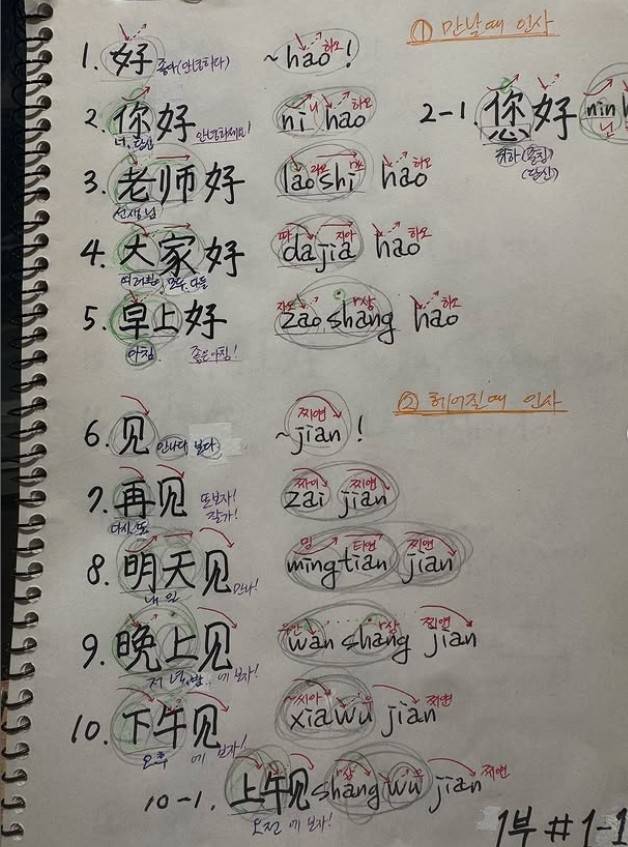 ① 만날때 인사
1. 好 좋아(안녕하다) ~hao! 하오
2. 你好 너, 당신 안녕하세요! ni hao 니 하오
2-1. 您好 귀하(존칭) (당신) nin 닌
3. 老师好 선생님 lao shi hao 라오 하오
4. 大家好 여러분, 모두, 다들 dajia hao 따 지아 하오
5. 早上好 아침 좋은아침! zao shang hao 자오 샹 하오
② 헤어질때 인사
6. 见 만나다 보다 ~jian! 찌앤
7. 再见 다시, 또 또보자! 잘가! zai jian 짜이 찌앤
8. 明天见 내일 만나! mingtian jian 밍 티앤 찌앤
9. 晚上见 저녁,밤 에 보자! wan shang jian 샹 찌앤
10. 下午见 오후 에 보자! xiawu jian 씨아 우 찌앤
10-1. 上午见 오전 에 보자! shang wu jian 샹 우 찌앤
1부 #1-1